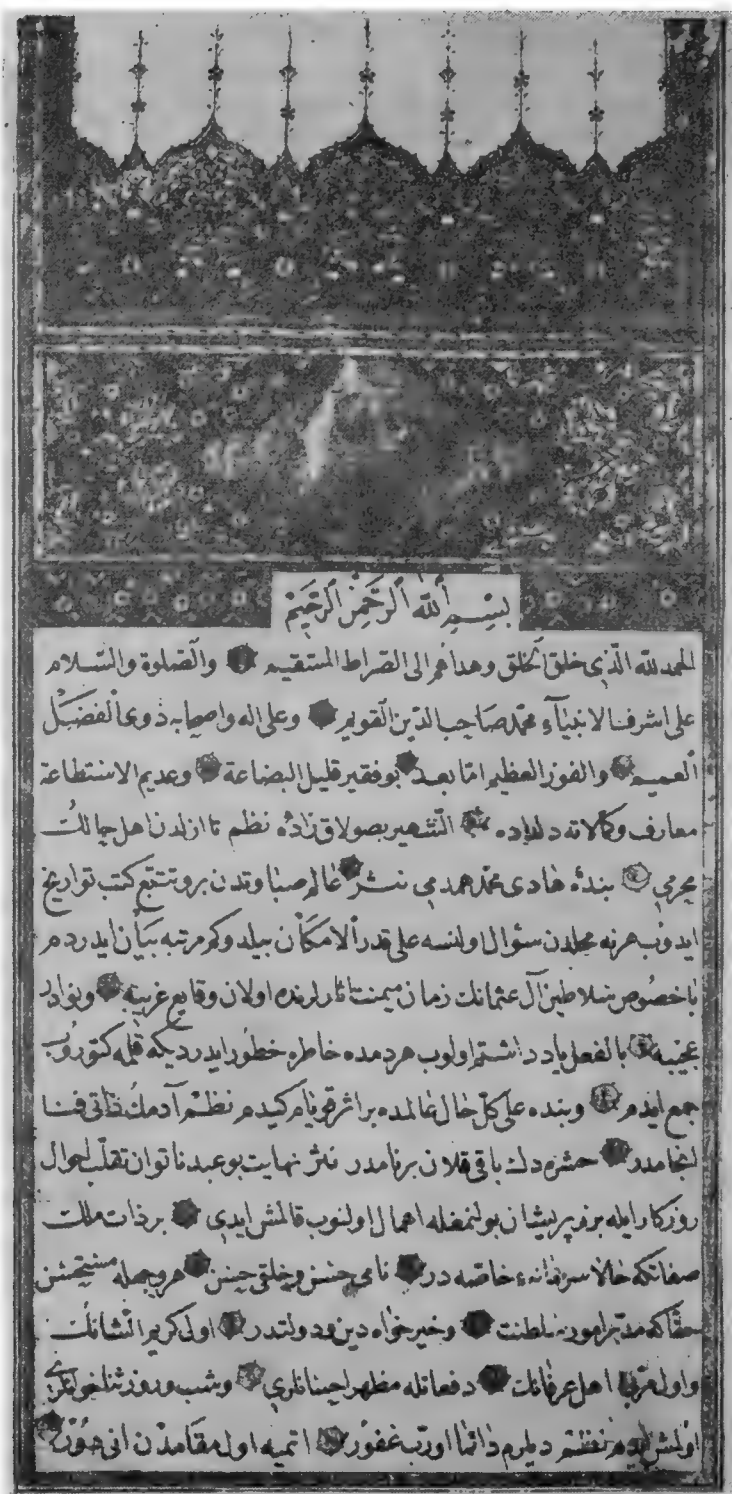 بسم الله الرحمن الرحيم
الحمد لله الذى خلق الخلق وهداهم الى الصراط المستقيم والصلوة والسلام
على اشرف الانبياء محمد صاحب الدين القويم وعلى اله واصحابه ذوى الفضل
العميم والفوز العظيم اما بعد بو فقير قليل البضاعة وعديم الاستطاعة
معارف وكمالاته دلداده الشهير بصولاق زاده نظم تا ازلدن اهل حالك
محرمى بندۀ هادى محمد همدمى نثر عالم صباوتدن برو تتبع كتب تواريخ
ايدوب هر نه محلدن سئوال اولنسه على قدر الامكان بيلدوكم مرتبه بيان ايدردم
باخصوص سلاطين آل عثمانك زمان ميمنت آثارلرنده اولان وقايع غريبه ونوادر
عجيبه بالفعل ياد داشتم اولوب هردمده خاطره خطور ايدرديكه قلمه كتوروب
جمع ايدم وبنده على كل حال عالمده بر اثر قويام كيدم نظم آدمك ذاتى فنا
انجامدر حشره دك باقى قلان بر نامدر نثر نهايت بو عبد ناتوان تقلب احوال
روزكار ايله برز پريشان بولنمغله اهمال اولنوب قالمش ايدى بر ذات ملك
صفاتكه حالا سر خاصه در نامى حسن وخلقى حسن هر وجهله مستحسن
حقا كه مدبر امور سلطنت وخير خواه دين ودولتدر اول كريم الشانك
واول اهل عرفانك دفعاتله مظهر احسانلرى وشب وروز ثناخوانلرى
اولمش ايدم نظم ديلرم دائما اورب غفور ايتميه اول مقامدن انى دور